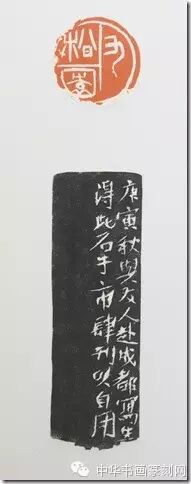 庚寅秋與友人赴成都寫生
得此石于市肆刊以自用
中华书画篆刻网